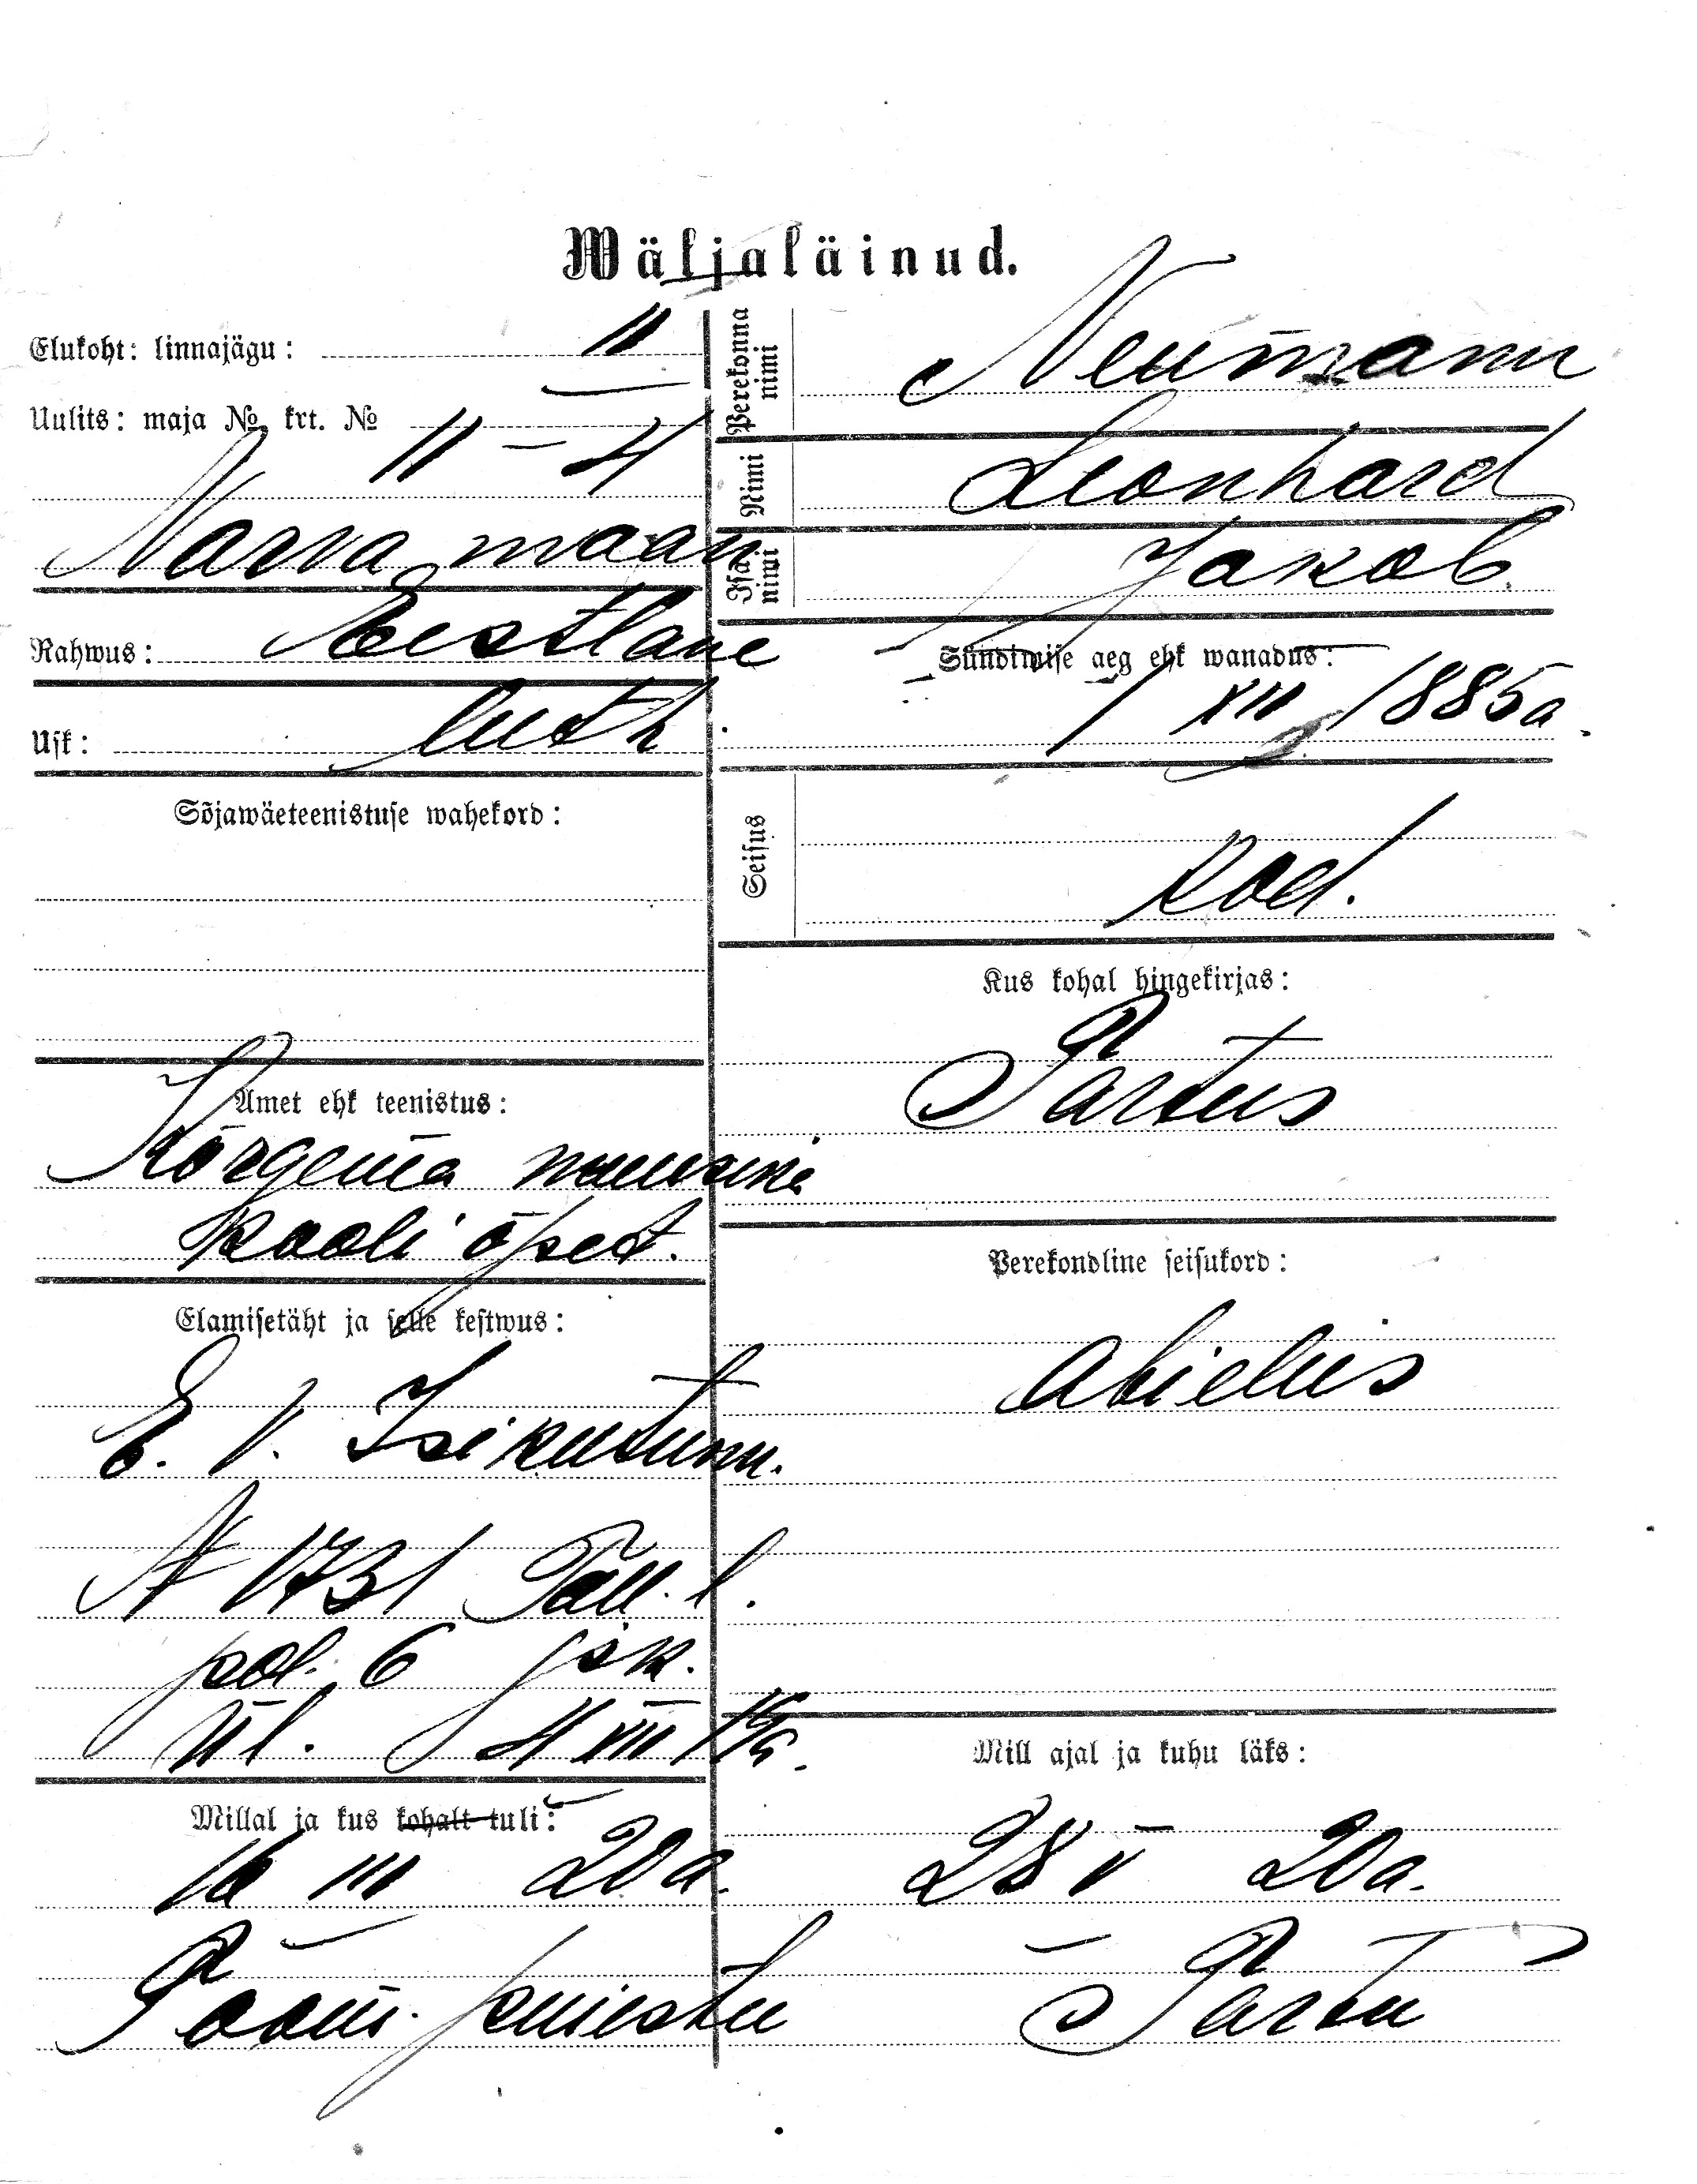 Wäljaläinud.
Elukoht: linnajägu: II
Uulits: maja № krt. №
11 – 4
Narva maan
Rahwus: Eestlane
Usk: luth.
Sõjawäeteenistuse wahekord:
Amet ehk teenistus:
Kõrgema muusika
kooli õpet.
Elamisetäht ja selle kestwus:
E. V. Isikutunn.
№ 1731 Tall. l.
pol. 6 jsk.
ül. 4 VIII 19a.
Millal ja kus kohalt tuli:
16 III 20a.
Toom. puiestee
Perekonna nimi Neumann
Nimi Leonhard
Isa nimi Jakob
Sündimise aeg ehk wanadus:
1 XII 1885a.
Seisus
kod.
Kus kohal hingekirjas:
Tartus
Perekondline seisukord:
abielus
Mill ajal ja kuhu läks:
28 V 20a.
Tartu